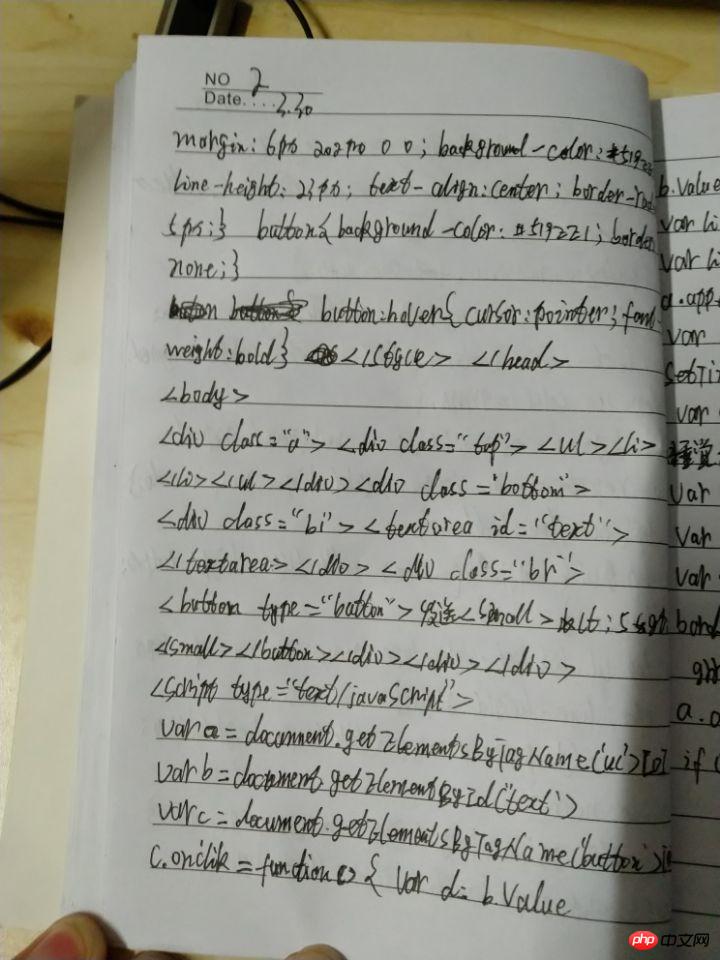 NO 2
Date.... 3.30
margin: 6px 202px 0 0; background-color: #5192
line-height: 23px; text-align: center; border-rad
5px;} button{background-color: #519221; border
none;}
button:hover{cursor:pointer; font
weight:bold} </style> </head>
<body>
<div class="a"> <div class="top"> <ul><li>
</li></ul></div><div class="bottom">
<div class="bl"> <textarea id="text">
</textarea></div> <div class="br">
<button type="button">发送<small>
</small></button></div></div></div>
<script type="text/javascript">
var a = document.getElementsByTagName('ul')[0]
var b = document.getElementById('text')
var c = document.getElementsByTagName('button')[
c.onclik = function() { var d = b.value
b.value
var li
var li
a.app
var
setTi
var
var
var
var
a.a
if (
php 中文网